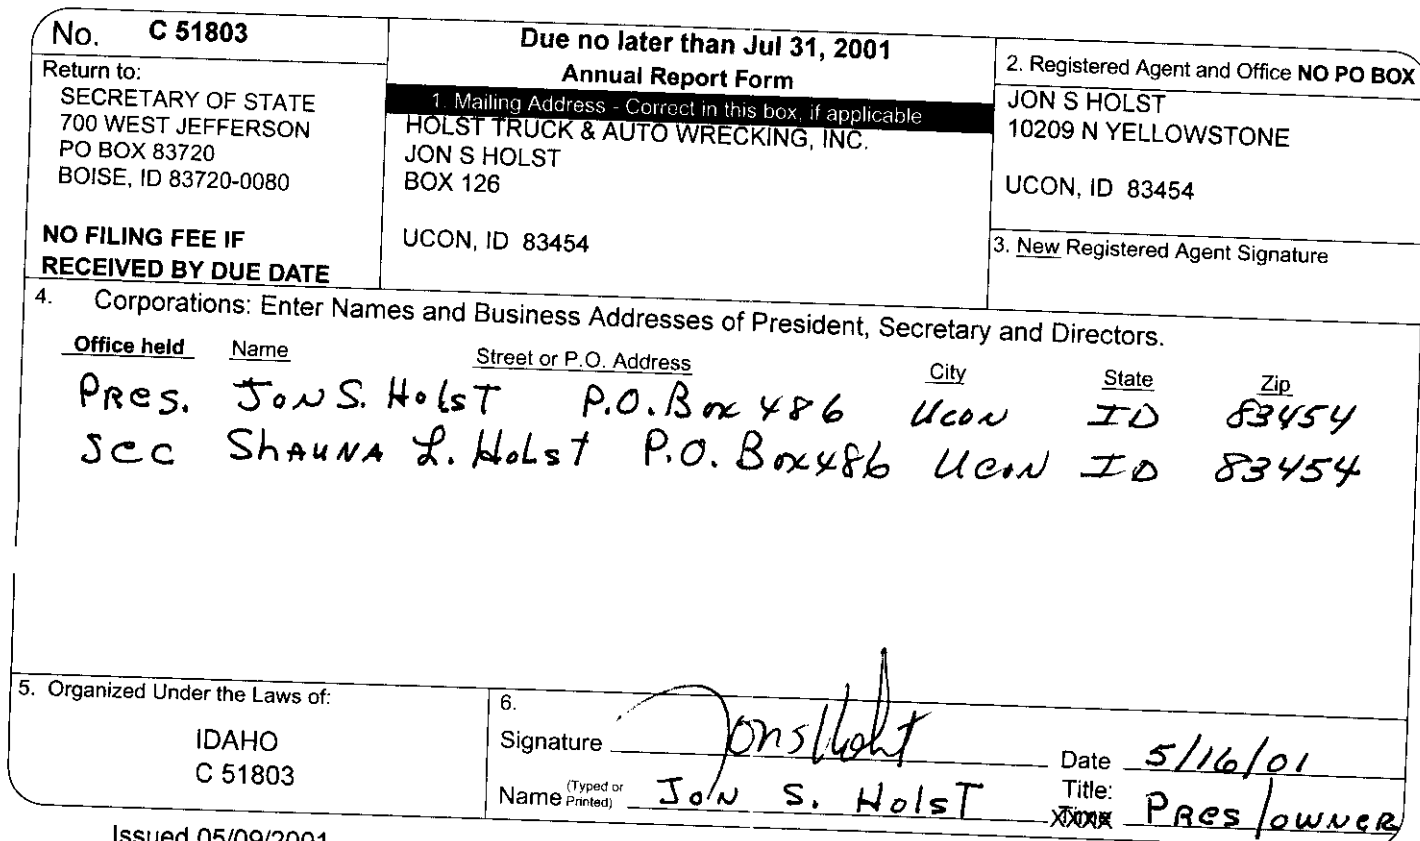 No. C 51803
Return to:
SECRETARY OF STATE
700 WEST JEFFERSON
PO BOX 83720
BOISE, ID 83720-0080
NO FILING FEE IF
RECEIVED BY DUE DATE
Due no later than Jul 31, 2001
Annual Report Form
1. Mailing Address - Correct in this box, if applicable
HOLST TRUCK & AUTO WRECKING, INC.
JON S HOLST
BOX 126
UCON, ID 83454
2. Registered Agent and Office NO PO BOX
JON S HOLST
10209 N YELLOWSTONE
UCON, ID 83454
3. New Registered Agent Signature
4. Corporations: Enter Names and Business Addresses of President, Secretary and Directors.
Office held Name Street or P.O. Address City State Zip
Pres. Jon S. Holst P.O. Box 486 Ucon ID 83454
Sec Shauna L. Holst P.O. Box 486 Ucon ID 83454
5. Organized Under the Laws of:
IDAHO
C 51803
6.
Signature Jon S Holst Date 5/16/01
Name (Typed or Printed) Jon S. Holst Title: Pres/owner
Issued 05/09/2001